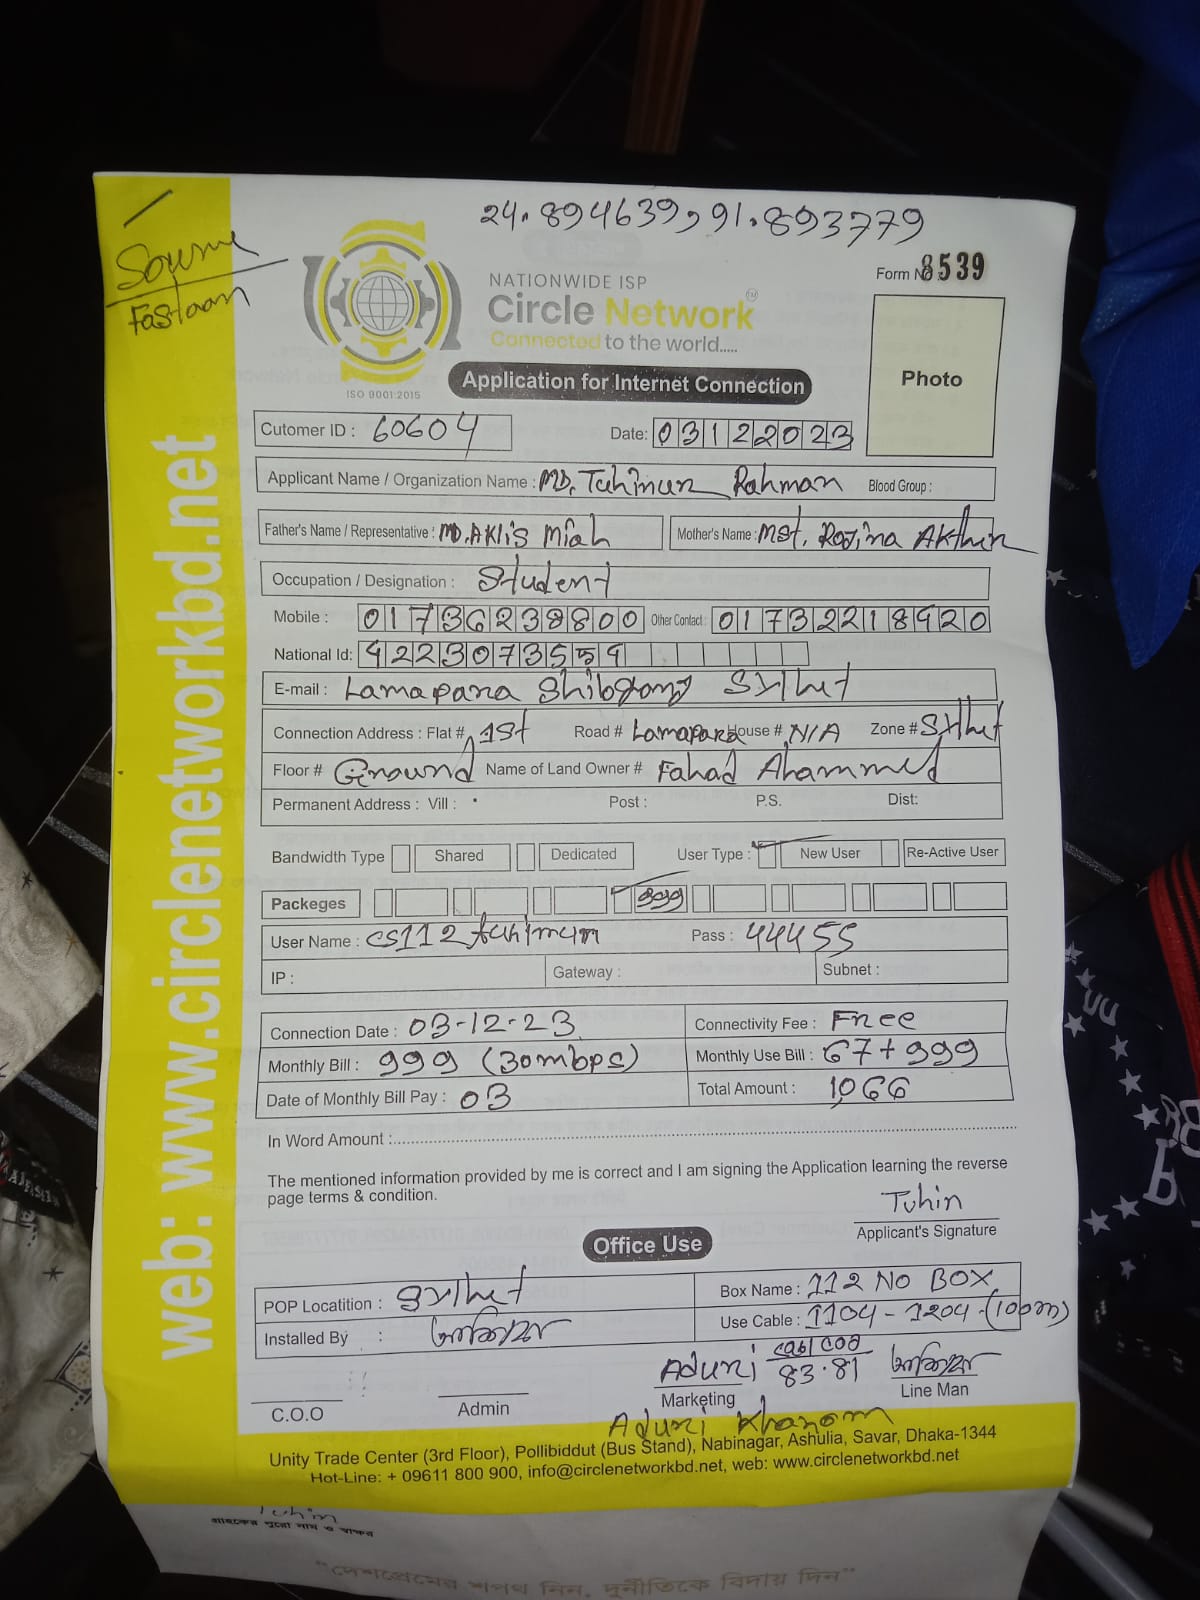 24.894639,91.893779
Sowmi
Fastaan
Form No 8539
NATIONWIDE ISP
Circle Network TM
Connected to the world.....
ISO 9001:2015
Application for Internet Connection
Photo
Cutomer ID : 60604
Date: 03122023
Applicant Name / Organization Name : MD. Tuhinur Rahman Blood Group :
Father's Name / Representative : MD. Aklis Miah Mother's Name : Mst. Rojina Akther
Occupation / Designation : Student
Mobile : 01736239800 Other Contact : 01732218920
National Id: 4223073559
E-mail : Lamapara Shibgonj Sylhet
Connection Address : Flat # 1st Road # Lamapara House # N/A Zone # Sylhet
Floor # Ground Name of Land Owner # Fahad Ahammed
Permanent Address : Vill : Post : P.S. Dist:
Bandwidth Type Shared Dedicated User Type : New User Re-Active User
Peckeges 999
User Name : CS112 tuhimun Pass : 44455
IP : Gateway : Subnet :
Connection Date : 03-12-23 Connectivity Fee : Free
Monthly Bill : 999 (30mbps) Monthly Use Bill : 67+999
Date of Monthly Bill Pay : 03 Total Amount : 1066
In Word Amount :
The mentioned information provided by me is correct and I am signing the Application learning the reverse
page terms & condition.
Tuhin
Applicant's Signature
Office Use
POP Locatition : Sylhet Box Name : 112 NO BOX
Installed By : Use Cable : 1104-1204-(100m)
Aduri 83.81
C.O.O Admin Marketing Line Man
Aduri Khanom
Unity Trade Center (3rd Floor), Pollibiddut (Bus Stand), Nabinagar, Ashulia, Savar, Dhaka-1344
Hot-Line: + 09611 800 900, info@circlenetworkbd.net, web: www.circlenetworkbd.net
web: www.circlenetworkbd.net
Tuhin
গ্রাহকের পুরো নাম ও স্বাক্ষর
"দেশপ্রেমের শপথ নিন, দুর্নীতিকে বিদায় দিন"